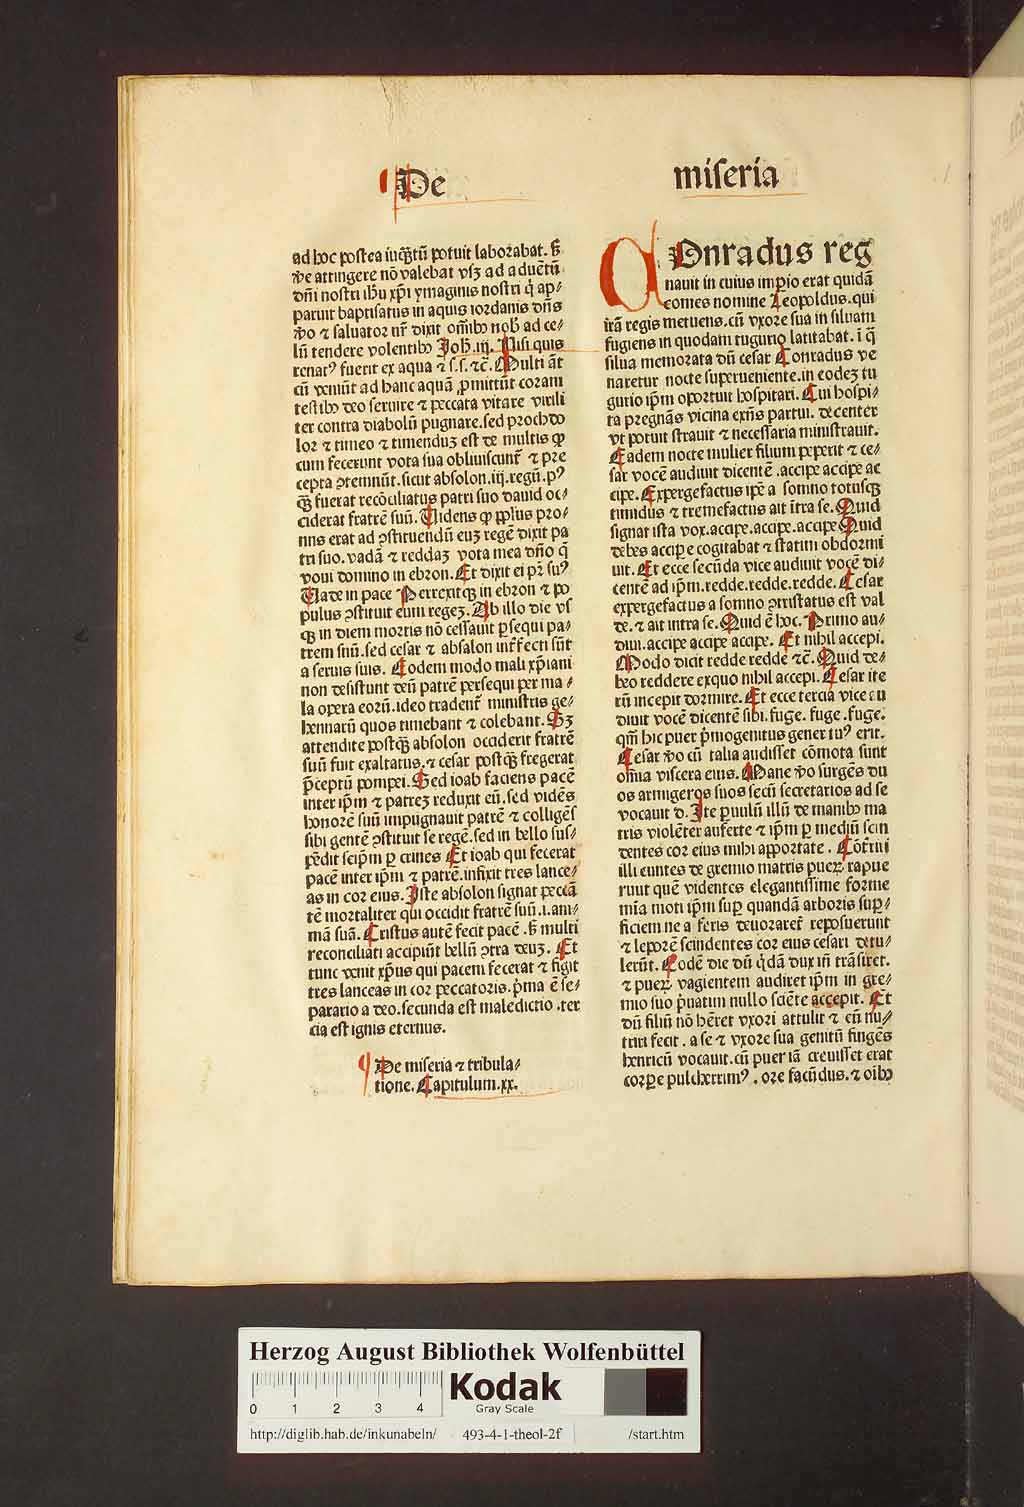 De miseria
ad hoc postea inq̄ꝫtū potuit laborabat. sꝫ
de attingere nō valebat vsꝫ ad aduētū
dn̄i nostri ih̄u xp̄i ymaginis nostri q̇ ap⸗
paruit baptisatus in aquis iordanis dn̄s
v̊o ⁊ saluator nr̄ dixit om̄ibꝰ nob̄ ad ce⸗
lū tendere volentibꝰ Joh̄. iij. Nisi quis
renatꝰ fuerit ex aqua ⁊ s.s. ⁊c̄. Multi āt
cū veniūt ad hanc aquā ꝓmittūt coram
testibꝰ deo seruire ⁊ peccata vitare virili
ter contra diabolū pugnare. sed proch do
lor ⁊ timeo ⁊ timenduꝫ est de multis ꝙ
cum fecerunt vota sua obliuiscunt̄ ⁊ pre
cepta ↄtemnūt. sicut absolon. iij. regū. pꝰ
qꝫ fuerat recōciliatus patri suo dauid oc⸗
ciderat fratrē suū. Uidens ꝙ pp̄lus pro⸗
nns erat ad ↄstituendū euꝫ regē dixit pa
tri suo. vadā ⁊ reddaꝫ vota mea dn̄o q̄
voui domino in ebron. Et dixit ei pr̄ suꝰ
Uade in pace Perrexitqꝫ in ebron ⁊ po
pulus ↄstituit eum regeꝫ. Ab illo die vs
qꝫ in diem mortis nō cessauit ꝑsequi pa⸗
trem suū. sed cesar ⁊ absalon int̄fecti sūt
a seruis suis. Eodem modo mali xp̄iani
non desistunt deū patrē persequi per ma⸗
la opera eorū. ideo tradent̄ ministris ge⸗
hennarū quos timebant ⁊ colebant. Sꝫ
attendite postqꝫ absalon occiderit fratrē
suū fuit exaltatus. ⁊ cesar postqꝫ fregerat
p̄ceptū pompei. Sed ioab faciens pacē
inter ip̄m ⁊ patreꝫ reduxit eū. sed vidēs
honorē suū impugnauit patrē ⁊ colligēs
sibi gentē ↄstituit se regē. sed in bello sus⸗
pēdit seip̄m ꝑ crines Et ioab qui fecerat
pacē inter ip̄m ⁊ patrē. infixit tres lance⸗
as in cor eius. Iste absolon signat peccā
tē mortaliter qui occidit fratrē suū .i. ani⸗
mā suā. Cristus autē fecit pacē. sꝫ multi
reconciliati accipiūt bellū ↄtra deuꝫ. Et
tunc venit xp̄us qui pacem fecerat ⁊ figit
tres lanceas in cor peccatoris. p̄ma ē se⸗
paratio a deo. secunda est maledictio. ter
cia est ignis eternus.
De miseria ⁊ tribula⸗
tione. Capitulum. xx.
COnradus reg
nauit in cuius imꝑio erat quidā
comes nomine Leopoldus. qui
irā regis metuens. cū vxore sua in siluam
fugiens in quodam tugurio latitabat. i q̄
silua memorata dū cesar Conradus ve
naretur nocte superueniente. in eodeꝫ tu
gurio ip̄m oportuit hospitari. Cui hospi⸗
ta pregnās vicina exn̄s partui. decenter
vt potuit strauit ⁊ necessaria ministrauit.
Eadem nocte mulier filium peperit ⁊ ce⸗
sar vocē audiuit dicentē. accipe accipe ac
cipe. Expergefactus ip̄e a somno totusqꝫ
timidus ⁊ tremefactus ait ītra se. Quid
signat ista vox. accipe. accipe. accipe Quid
debes accipe cogitabat ⁊ statim obdormi
uit. Et ecce secūda vice audiuit vocē di⸗
centē ad ip̄m. redde. redde. redde. Cesar
expergefactus a somno ↄtristatus est val
de. ⁊ ait intra se. Quid ē hoc. Primo au⸗
diui. accipe accipe accipe. Et nihil accepi.
Modo dicit redde redde ⁊c̄. Quid de⸗
beo reddere exquo nihil accepi. Cesar ite
rū incepit dormire. Et ecce tercia vice au
diuit vocē dicentē sibi. fuge. fuge. fuge.
qm̄ hic puer p̄mogenitus gener tuꝰ erit.
Cesar v̊o cū talia audisset cōmota sunt
om̄ia viscera eius. Mane v̊o surgēs du
os armigeros suos secū secretarios ad se
vocauit d. Ite ꝑuulū illū de manibꝰ ma
tris violēter auferte ⁊ ip̄m ꝑ mediū scin
dentes cor eius mihi apportate. Cōt̄riti
illi euntes de gremio matris pueꝝ rapue
ruut quē videntes elegantissime forme
mīa moti ip̄m suꝑ quandā arboris suꝑ⸗
ficiem ne a feris deuoraret̄ reposuerunt
⁊ leporē scindentes cor eius cesari detu⸗
lerūt. Eodē die dū q̇dā dux iñ trāsiret.
⁊ pueꝝ vagientem audiret ip̄m in gre⸗
mio suo p̄uatim nullo sciēte accepit. Et
dū filiū nō hēret vxori attulit ⁊ cū nu⸗
triri fecit. a se ⁊ vxore sua genitū fingēs
henricū vocauit. cū puer iā creuisset erat
corꝑe pulcherrimꝰ. ore facūdus. ⁊ oībꝰ
Herzog August Bibliothek Wolfenbüttel
0 1 2 3 4
Kodak
Gray Scale
http://diglib.hab.de/inkunabeln/ 493-4-1-theol-2f /start.htm